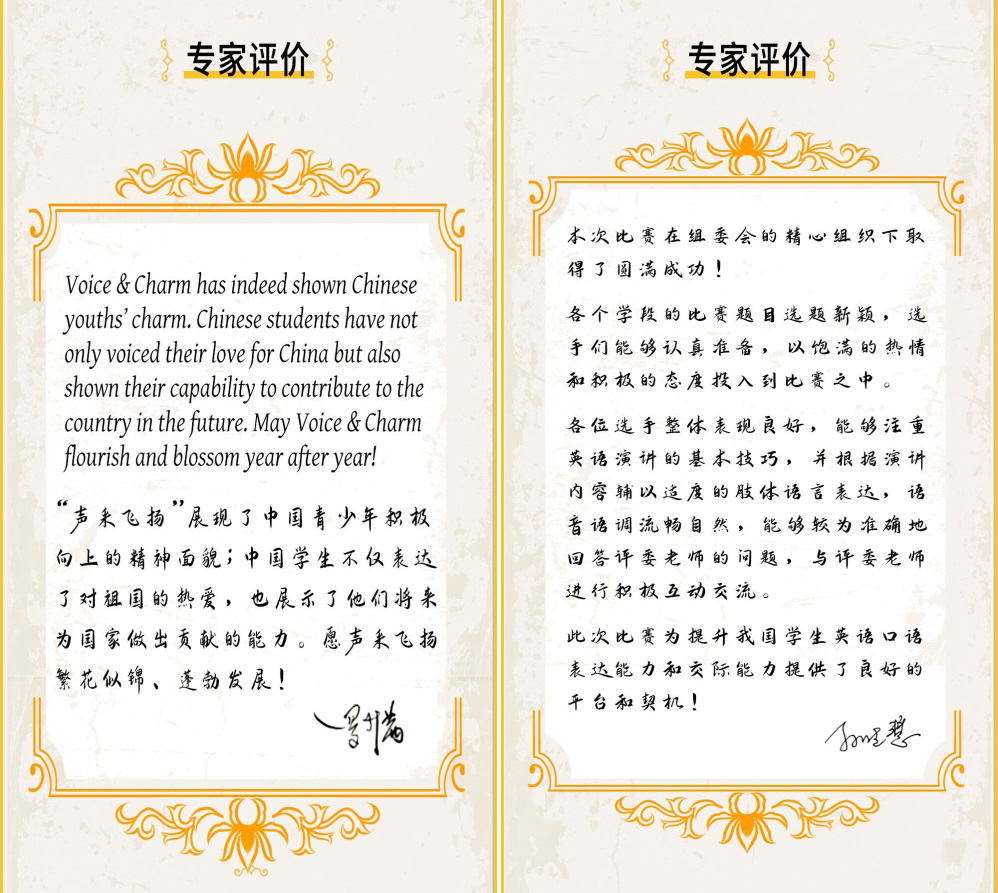 专家评价
Voice & Charm has indeed shown Chinese
youths’ charm. Chinese students have not
only voiced their love for China but also
shown their capability to contribute to the
country in the future. May Voice & Charm
flourish and blossom year after year!
“声采飞扬”展现了中国青少年积极
向上的精神面貌；中国学生不仅表达
了对祖国的热爱，也展示了他们将来
为国家做出贡献的能力。愿声采飞扬
繁花似锦、蓬勃发展！
专家评价
本次比赛在组委会的精心组织下取
得了圆满成功！
各个学段的比赛题目选题新颖，选
手们能够认真准备，以饱满的热情
和积极的态度投入到比赛之中。
各位选手整体表现良好，能够注重
英语演讲的基本技巧，并根据演讲
内容辅以适度的肢体语言表达，语
音语调流畅自然，能够较为准确地
回答评委老师的问题，与评委老师
进行积极互动交流。
此次比赛为提升我国学生英语口语
表达能力和交际能力提供了良好的
平台和契机！